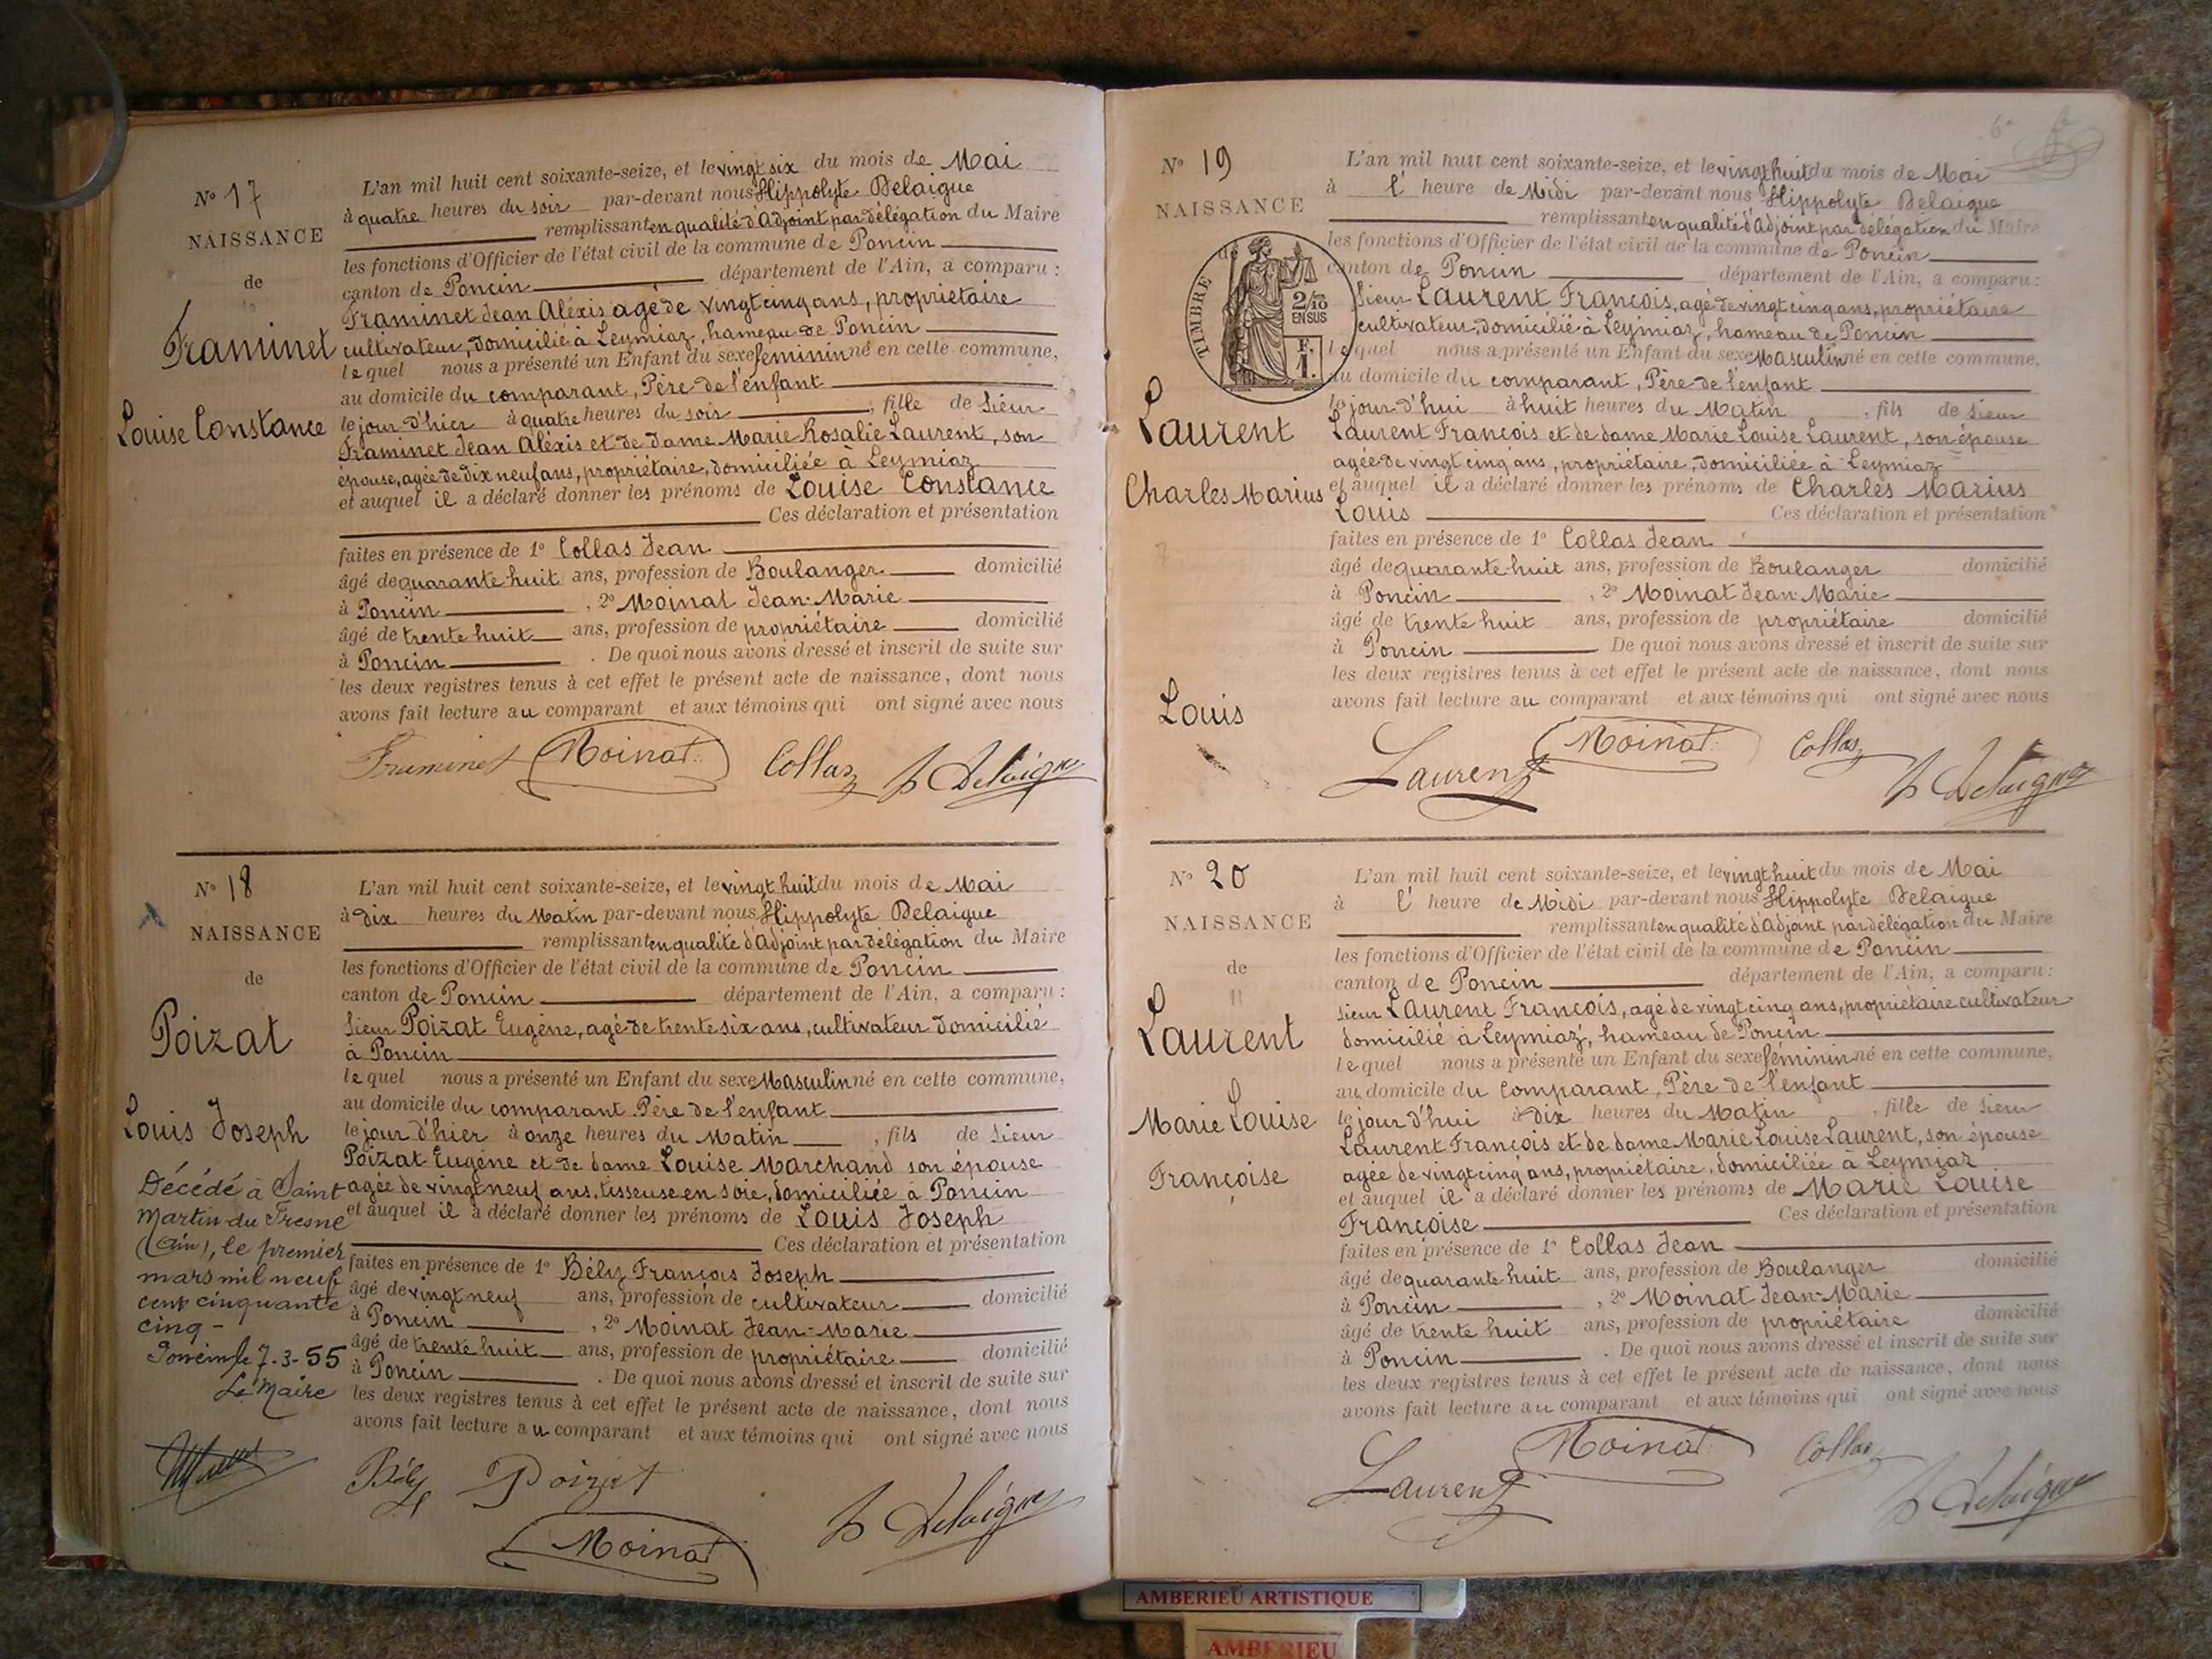 N° 17
NAISSANCE
de
Framinet
Louise Constance
L'an mil huit cent soixante-seize, et le vingt six du mois de Mai
à quatre heures du soir par-devant nous Hippolyte Delaigue
remplissant en qualité d'Adjoint par délégation du Maire
les fonctions d'Officier de l'état civil de la commune de Poncin
canton de Poncin département de l'Ain, a comparu :
Framinet Jean Aléxis agé de vingt cinq ans, propriétaire
cultivateur, domicilié à Leymiaz, hameau de Poncin
lequel nous a présenté un Enfant du sexe féminin né en cette commune,
au domicile du comparant, Père de l'enfant
le jour d'hier à quatre heures du soir, fille de Sieur
Framinet Jean Aléxis et de dame Marie Rosalie Laurent, son
épouse, agée de dix neuf ans, propriétaire, domiciliée à Leymiaz
et auquel il a déclaré donner les prénoms de Louise Constance
Ces déclaration et présentation
faites en présence de 1° Collas Jean
âgé de quarante huit ans, profession de Boulanger domicilié
à Poncin, 2° Moinat Jean-Marie
âgé de trente huit ans, profession de propriétaire domicilié
à Poncin. De quoi nous avons dressé et inscrit de suite sur
les deux registres tenus à cet effet le présent acte de naissance, dont nous
avons fait lecture au comparant et aux témoins qui ont signé avec nous
Framinet Moinat Collas h Delaigue
N° 18
NAISSANCE
de
Poizat
Louis Joseph
Décédé à Saint
Martin-du Fresne
(Ain), le premier
mars mil neuf
cent cinquante
cinq -
Poncin le 7-3-55
Le Maire
L'an mil huit cent soixante-seize, et le vingt huit du mois de Mai
à dix heures du Matin par-devant nous Hippolyte Delaigue
remplissant en qualité d'Adjoint par délégation du Maire
les fonctions d'Officier de l'état civil de la commune de Poncin
canton de Poncin département de l'Ain, a comparu :
Sieur Poizat Eugène, agé de trente six ans, cultivateur domicilié
à Poncin
lequel nous a présenté un Enfant du sexe Masculin né en cette commune,
au domicile du comparant. Père de l'enfant
le jour d'hier à onze heures du Matin, fils de Sieur
Poizat Eugène et de dame Louise Marchand son épouse
agée de vingt neuf ans, tisseuse en soie, domiciliée à Poncin
et auquel il a déclaré donner les prénoms de Louis Joseph
Ces déclaration et présentation
faites en présence de 1° Bély François Joseph
âgé de vingt neuf ans, profession de cultivateur domicilié
à Poncin, 2° Moinat Jean-Marie
âgé de trente huit ans, profession de propriétaire domicilié
à Poncin. De quoi nous avons dressé et inscrit de suite sur
les deux registres tenus à cet effet le présent acte de naissance, dont nous
avons fait lecture au comparant et aux témoins qui ont signé avec nous
Bély Poizat
Moinat h Delaigue
N° 19
NAISSANCE
TIMBRE
2/10
EN SUS
F.
1.
Laurent
Charles Marius
Louis
L'an mil huit cent soixante-seize, et le vingt huit du mois de Mai
à l' heure de Midi par-devant nous Hippolyte Delaigue
remplissant en qualité d'Adjoint par délégation du Maire
les fonctions d'Officier de l'état civil de la commune de Poncin
canton de Poncin département de l'Ain, a comparu :
Sieur Laurent François, agé de vingt cinq ans, propriétaire
cultivateur, domicilié à Leymiaz, hameau de Poncin
lequel nous a présenté un Enfant du sexe Masculin né en cette commune,
au domicile du comparant, Père de l'enfant
le jour d'hui à huit heures du Matin, fils de Sieur
Laurent François et de dame Marie Louise Laurent, son épouse
agée de vingt cinq ans, propriétaire, domiciliée à Leymiaz
et auquel il a déclaré donner les prénoms de Charles Marius
Louis Ces déclaration et présentation
faites en présence de 1° Collas Jean
âgé de quarante huit ans, profession de Boulanger domicilié
à Poncin, 2° Moinat Jean-Marie
âgé de trente huit ans, profession de propriétaire domicilié
à Poncin De quoi nous avons dressé et inscrit de suite sur
les deux registres tenus à cet effet le présent acte de naissance, dont nous
avons fait lecture au comparant et aux témoins qui ont signé avec nous
Laurent Moinat Collas h Delaigue
N° 20
NAISSANCE
de
Laurent
Marie Louise
Françoise
L'an mil huit cent soixante-seize, et le vingt huit du mois de Mai
à l' heure de Midi par-devant nous Hippolyte Delaigue
remplissant en qualité d'Adjoint par délégation du Maire
les fonctions d'Officier de l'état civil de la commune de Poncin
canton de Poncin département de l'Ain, a comparu :
Sieur Laurent François, agé de vingt cinq ans, propriétaire cultivateur
domicilié à Leymiaz, hameau de Poncin
lequel nous a présenté un Enfant du sexe féminin né en cette commune,
au domicile du Comparant, Père de l'enfant
le jour d'hui à dix heures du Matin, fille de Sieur
Laurent François et de dame Marie Louise Laurent, son épouse
agée de vingt cinq ans, propriétaire, domiciliée à Leymiaz
et auquel il a déclaré donner les prénoms de Marie Louise
Françoise Ces déclaration et présentation
faites en présence de 1° Collas Jean
âgé de quarante huit ans, profession de Boulanger domicilié
à Poncin, 2° Moinat Jean-Marie
âgé de trente huit ans, profession de propriétaire domicilié
à Poncin. De quoi nous avons dressé et inscrit de suite sur
les deux registres tenus à cet effet le présent acte de naissance, dont nous
avons fait lecture au comparant et aux témoins qui ont signé avec nous
Laurent Moinat Collas h Delaigue
AMBERIEU ARTISTIQUE
AMBERIEU